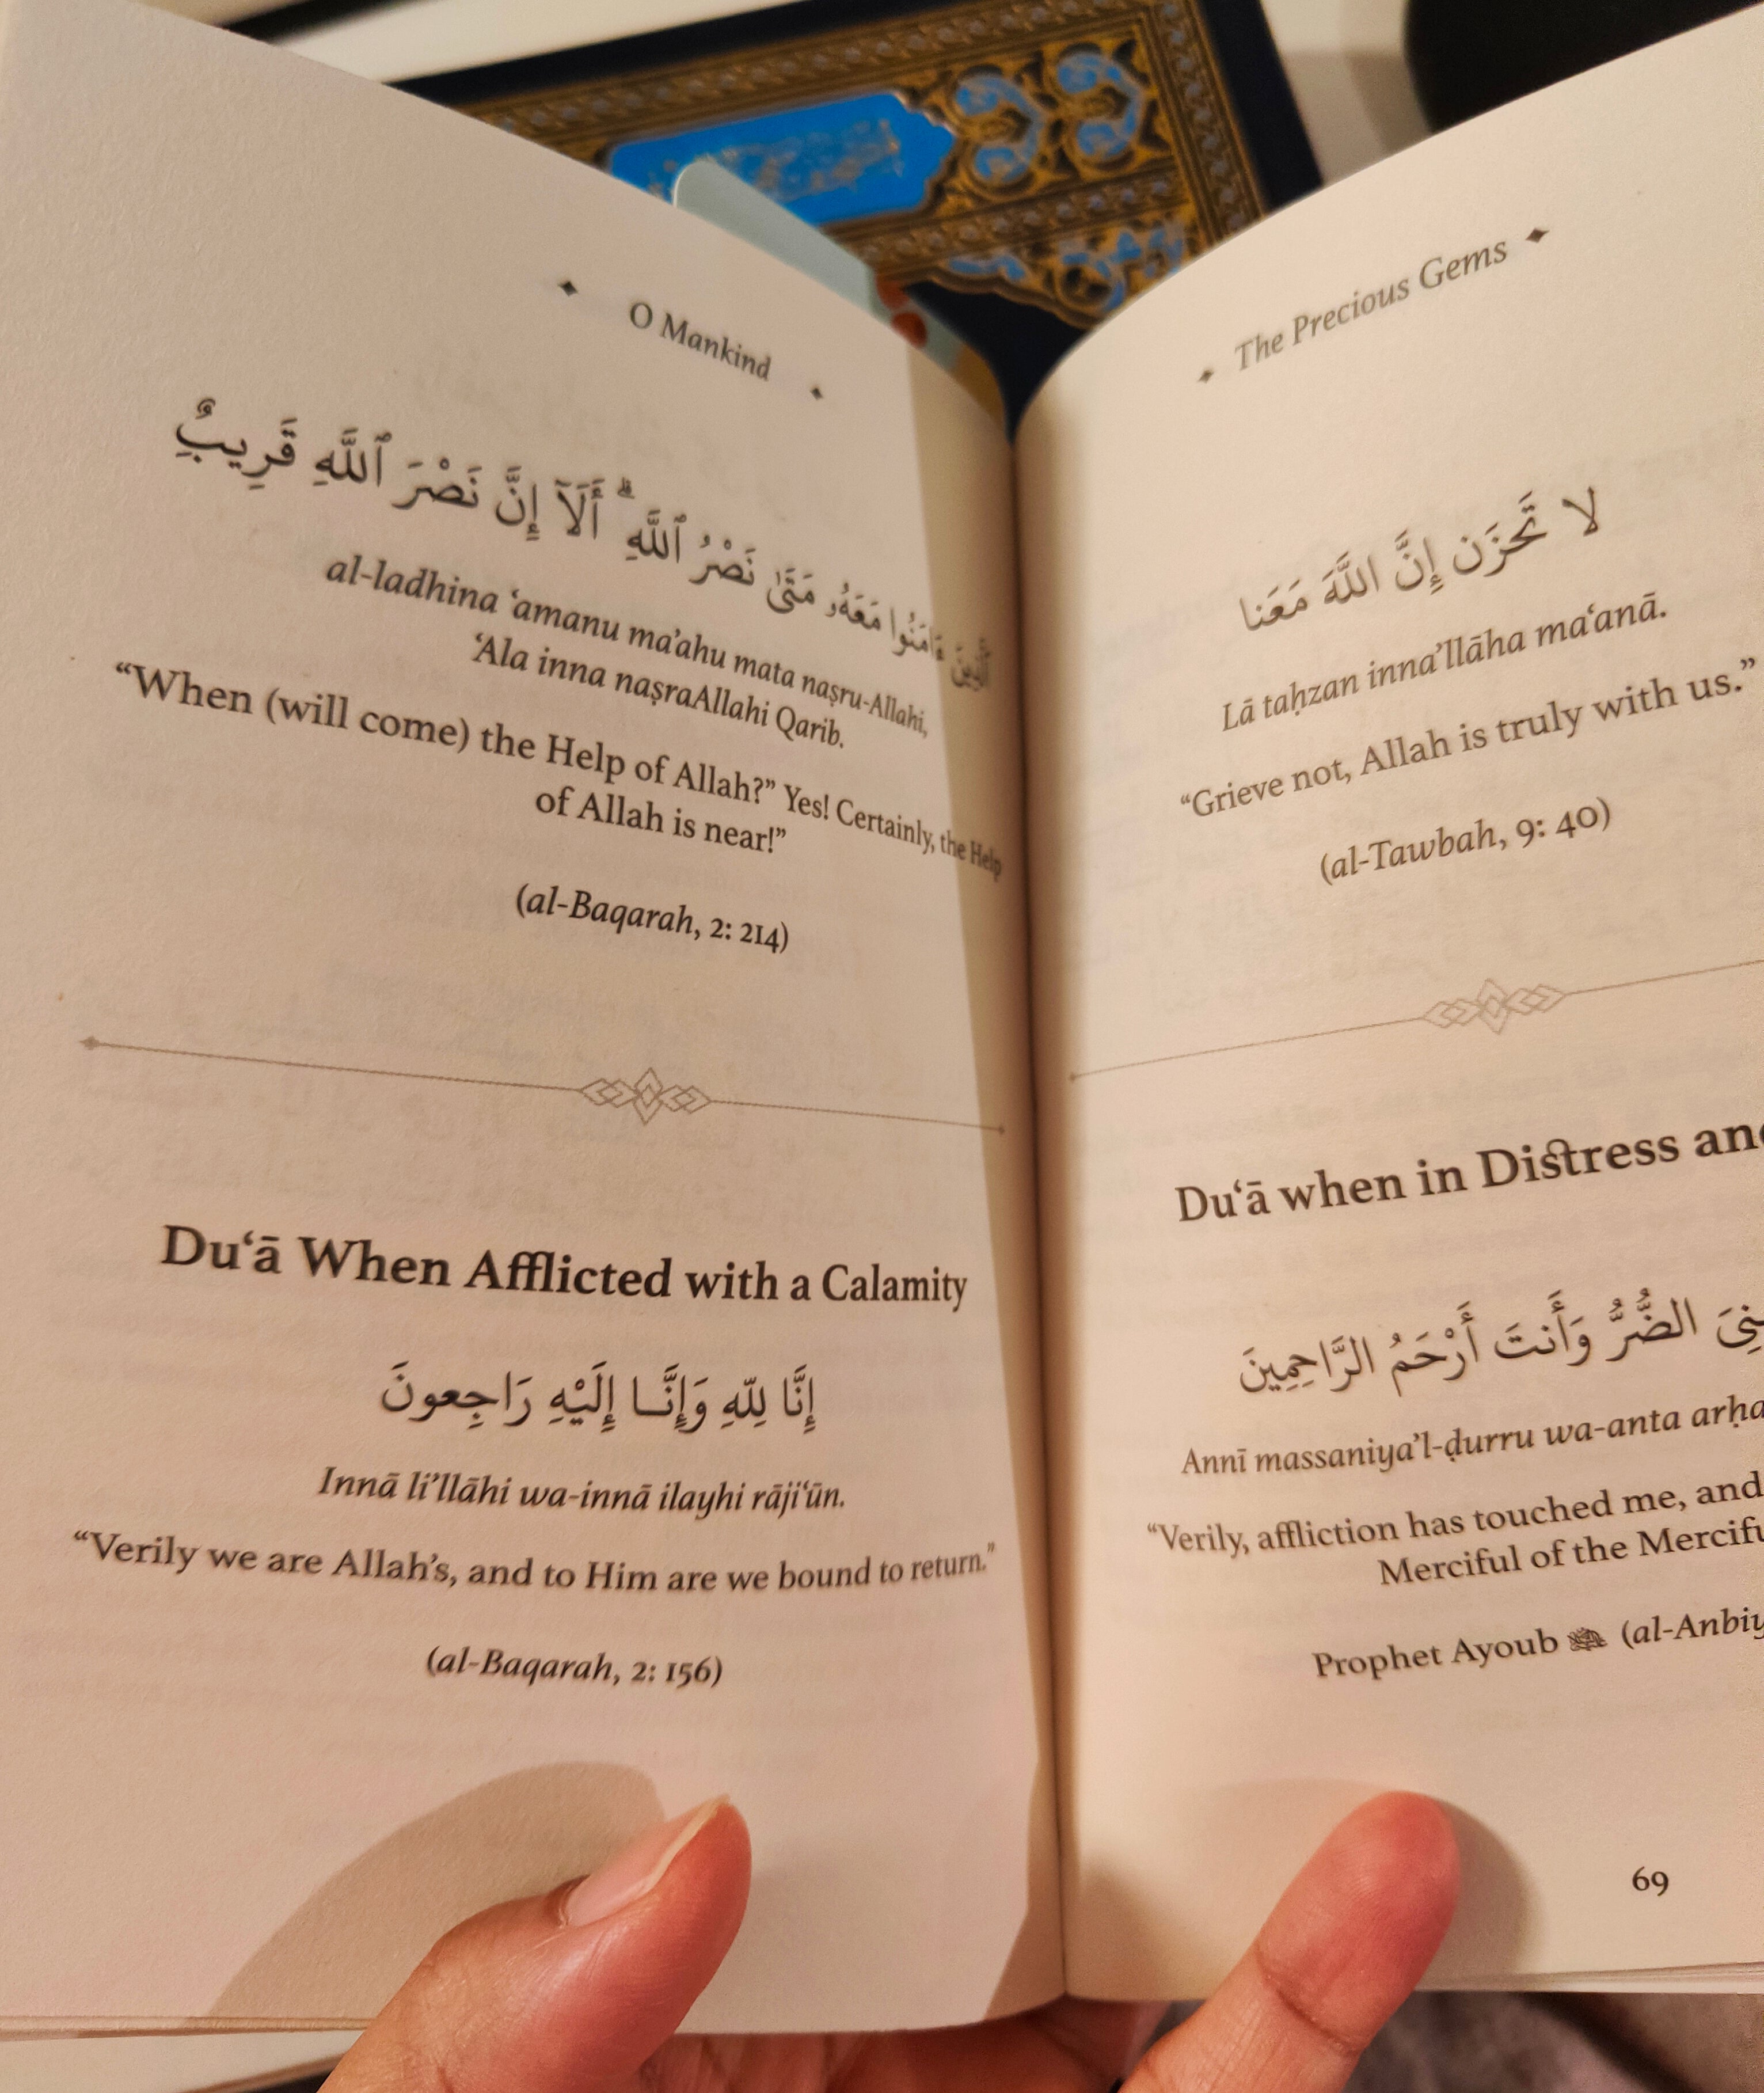 O Mankind
ٱلَّذِينَ ءَامَنُوا مَعَهُۥ مَتَىٰ نَصْرُ ٱللَّهِ ۗ أَلَآ إِنَّ نَصْرَ ٱللَّهِ قَرِيبٌ
al-ladhina ‘amanu ma’ahu mata naṣru-Allahi,
‘Ala inna naṣraAllahi Qarib.
“When (will come) the Help of Allah?” Yes! Certainly, the Help
of Allah is near!”
(al-Baqarah, 2: 214)
Du‘ā When Afflicted with a Calamity
إِنَّا لِلّٰهِ وَإِنَّـا إِلَيْهِ رَاجِعونَ
Innā li’llāhi wa-innā ilayhi rāji‘ūn.
“Verily we are Allah’s, and to Him are we bound to return.”
(al-Baqarah, 2: 156)
The Precious Gems
لا تَحْزَن إِنَّ اللَّهَ مَعَنا
Lā taḥzan inna’llāha ma‘anā.
“Grieve not, Allah is truly with us.”
(al-Tawbah, 9: 40)
Du‘ā when in Distress and
الضُّرُّ وَأَنتَ أَرْحَمُ الرَّاحِمِينَ
Annī massaniya’l-ḍurru wa-anta
“Verily, affliction has touched me, and
Merciful of the
Prophet Ayoub
69